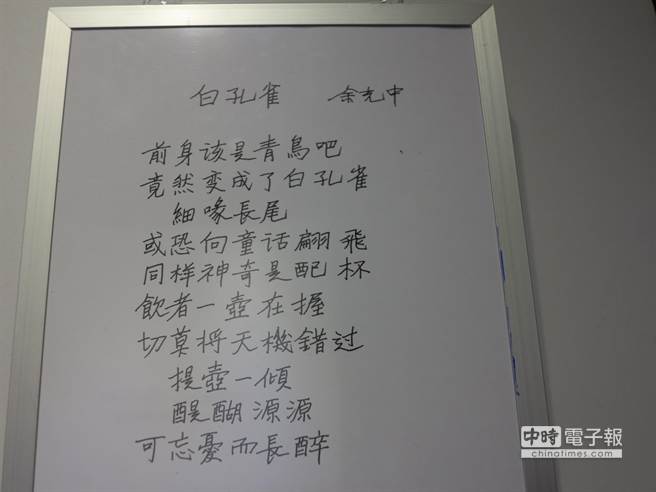 白孔雀 余光中
前身该是青鳥吧
竟然变成了白孔雀
細喙長尾
或恐向童话翩飛
同样神奇是配杯
飲者一壺在握
切莫将天機錯过
提壺一傾
醍醐源源
可忘憂而長醉
中時電子報
chinatimes.com